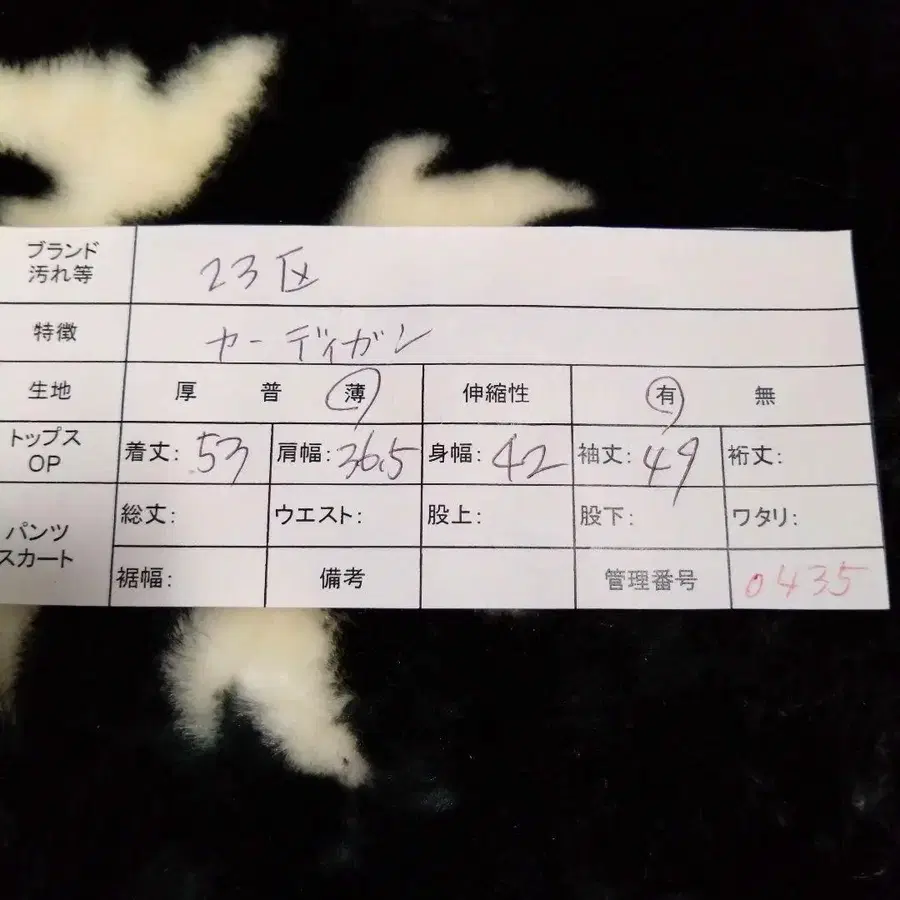 ブランド
汚れ等 23区
特徴 カーディガン
生地 厚 普 薄 伸縮性 有 無
トップス
OP 着丈: 53 肩幅: 36.5 身幅: 42 袖丈: 49 裄丈:
パンツ
スカート 総丈: ウエスト: 股上: 股下: ワタリ:
裾幅: 備考 管理番号 0435